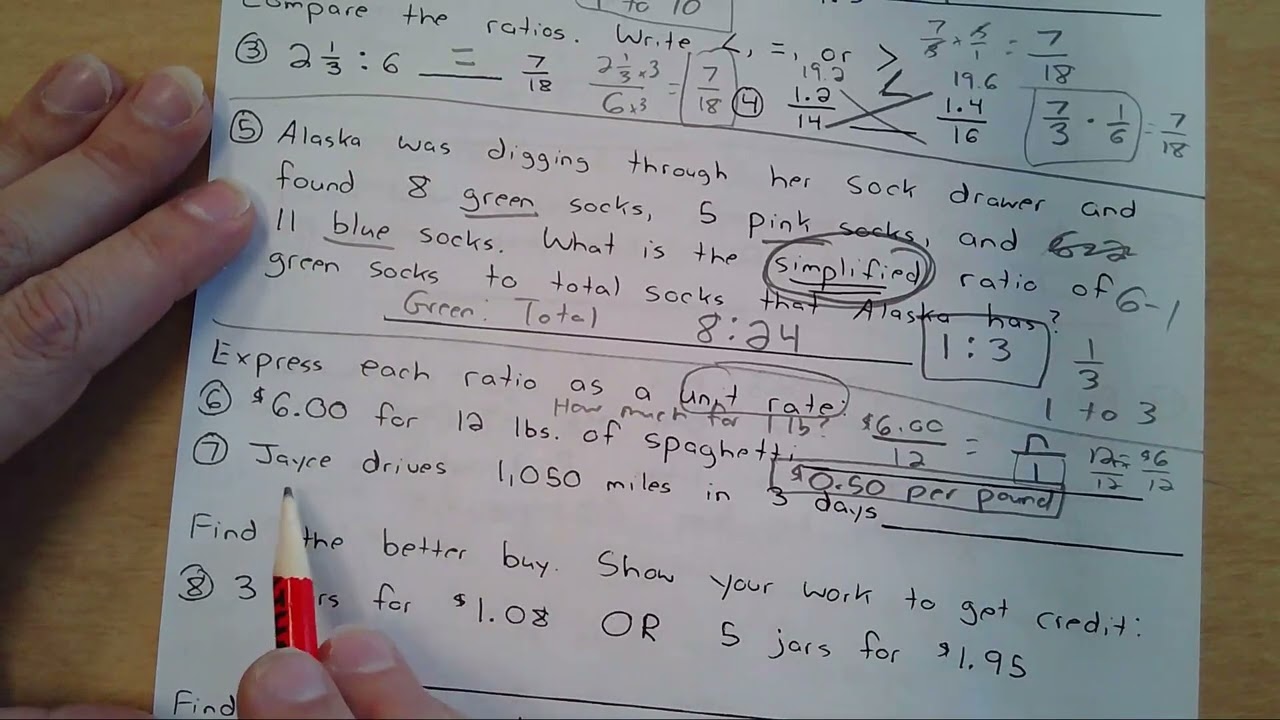 1 to 10
Compare the ratios. Write <, =, or >
③ 2 1/3 : 6 = 7/18
2 1/3 ×3 / 6 ×3 = 7/18
7/3 × 6/1 = 7/18
④ 1.2/14 < 1.4/16
19.2 19.6
7/3 · 1/6 = 7/18
⑤ Alaska was digging through her sock drawer and
found 8 green socks, 5 pink socks, and
11 blue socks. What is the simplified ratio of 6-1
green socks to total socks that Alaska has?
Green: Total 8:24 1:3 1/3
1 to 3
Express each ratio as a unit rate.
How much for 1 lb?
⑥ $6.00 for 12 lbs. of spaghetti
$6.00/12 = n/1 12n/12 = $6/12
$0.50 per pound
⑦ Jayce drives 1,050 miles in 3 days
Find the better buy. Show your work to get credit:
⑧ 3 rs for $1.08 OR 5 jars for $1.95
Find